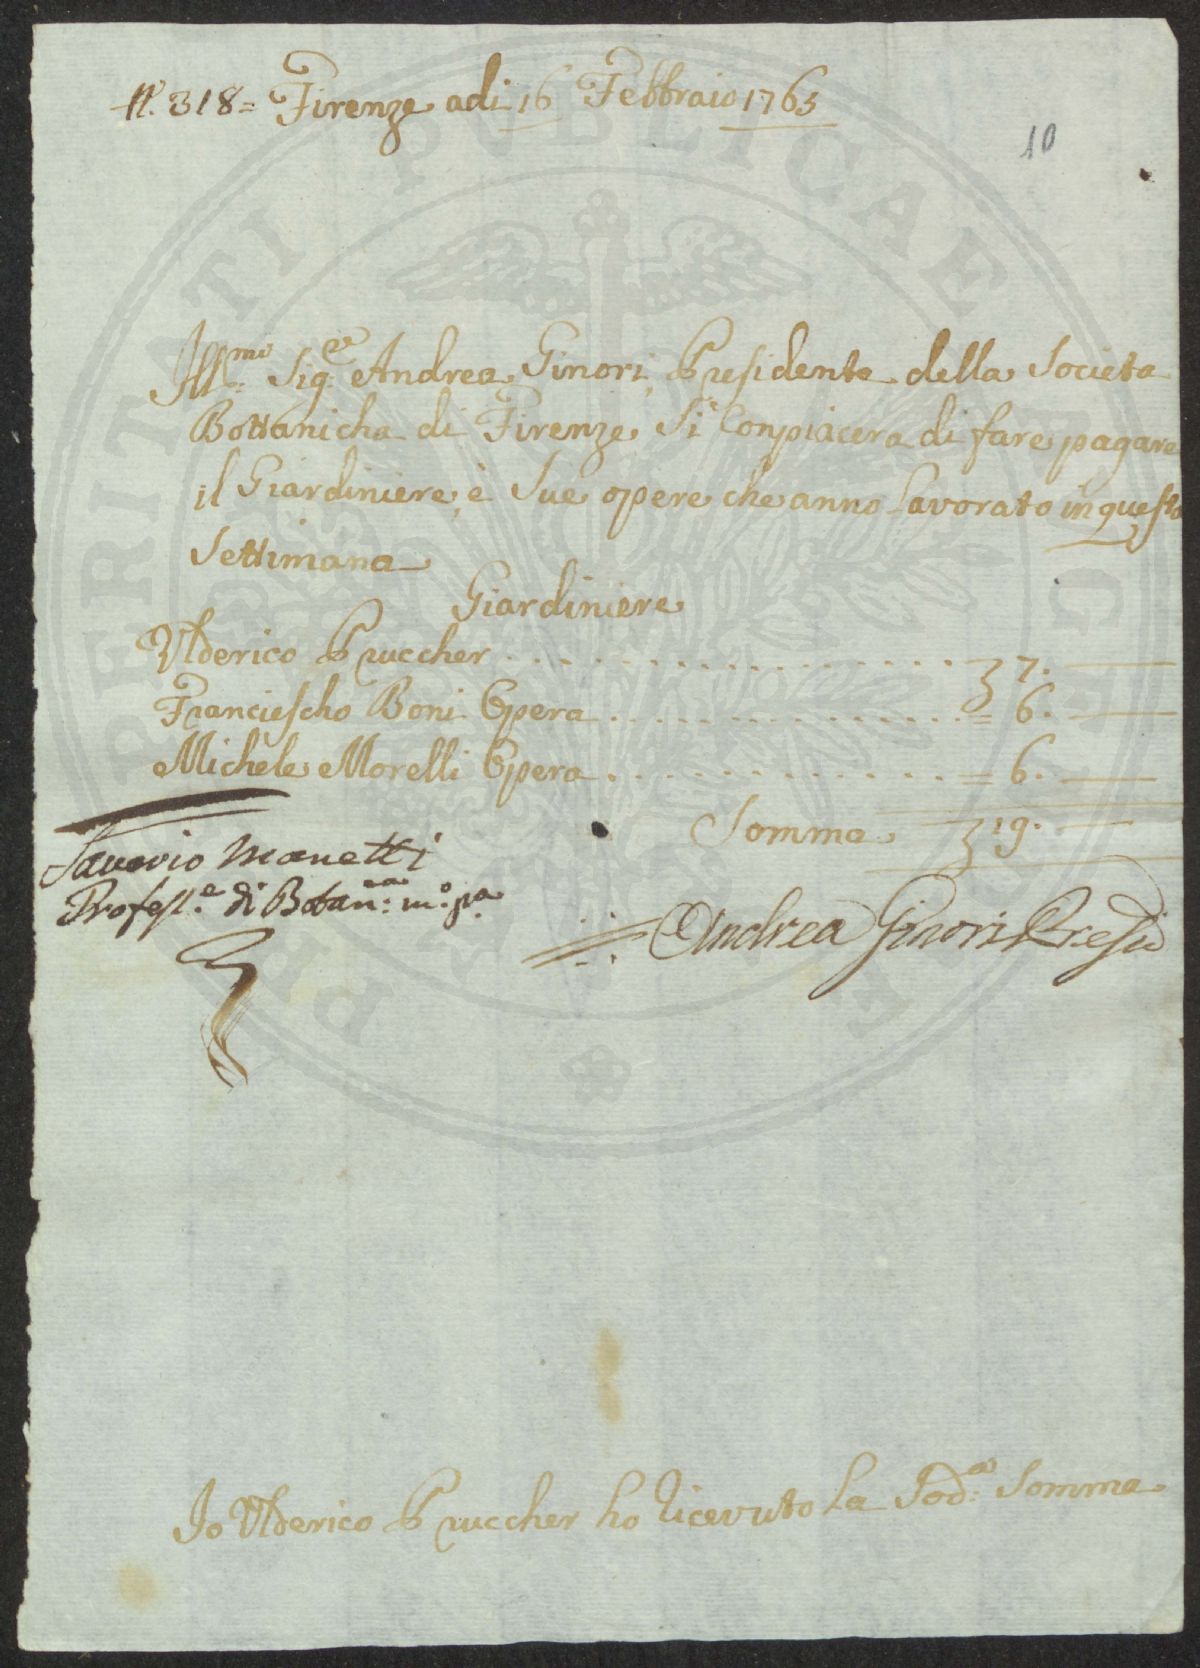 N. 318 = Firenze adi 16 Febbraio 1763
10
Ill.mo Sig.re Andrea Ginori Presidente della Societa
Bottanicha di Firenze Si Conpiacera di fare pagare
il Giardiniere, e Sue opere che anno Lavorato in questa
Settimana
Giardiniere
Ulderico Pruccher . . . . . . . . . . . . . . . . 7. —
Franciescho Boni Opera . . . . . . . . . . . . . . = 6. —
Michele Morelli Opera . . . . . . . . . . . . . = 6. —
Somma 19. —
Saverio Manetti
Profess.e di Botan.ca m.o p.a
Andrea Ginori Presid
Io Ulderico Pruccher ho Ricevuto La Sod.a Somma
PERITATI PUBLICAE